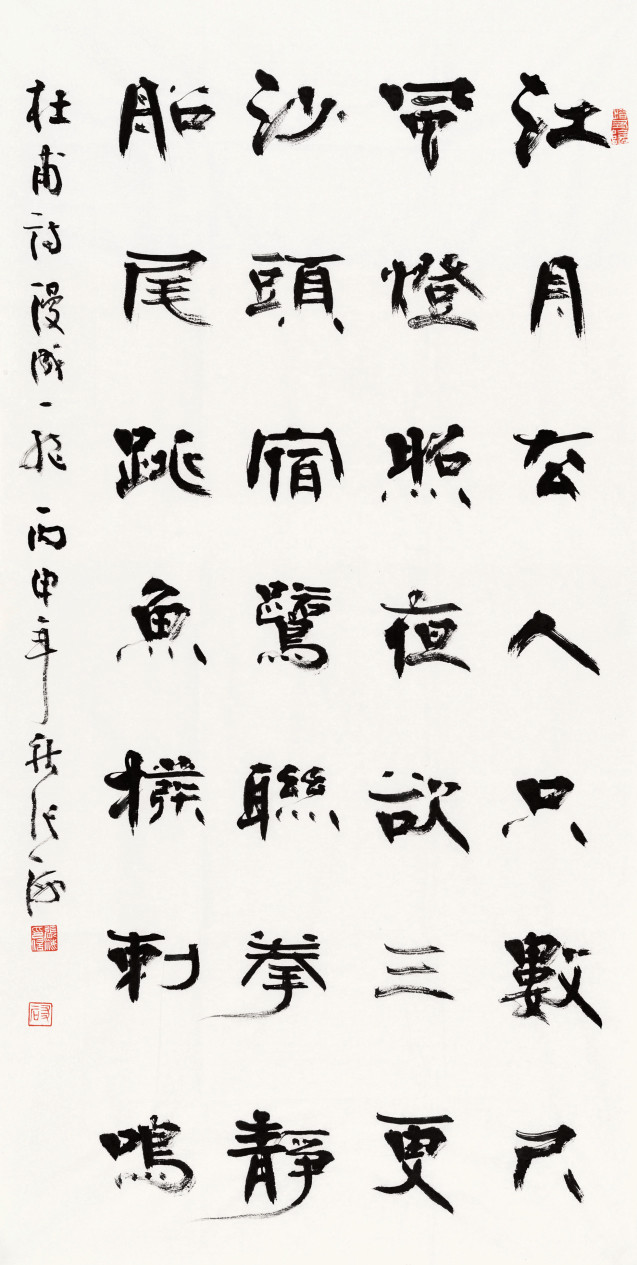 江月去人只數尺
風燈照夜欲三更
沙頭宿鷺聯拳靜
船尾跳魚撥剌鳴
杜甫詩漫成一絕 丙申年秋張海